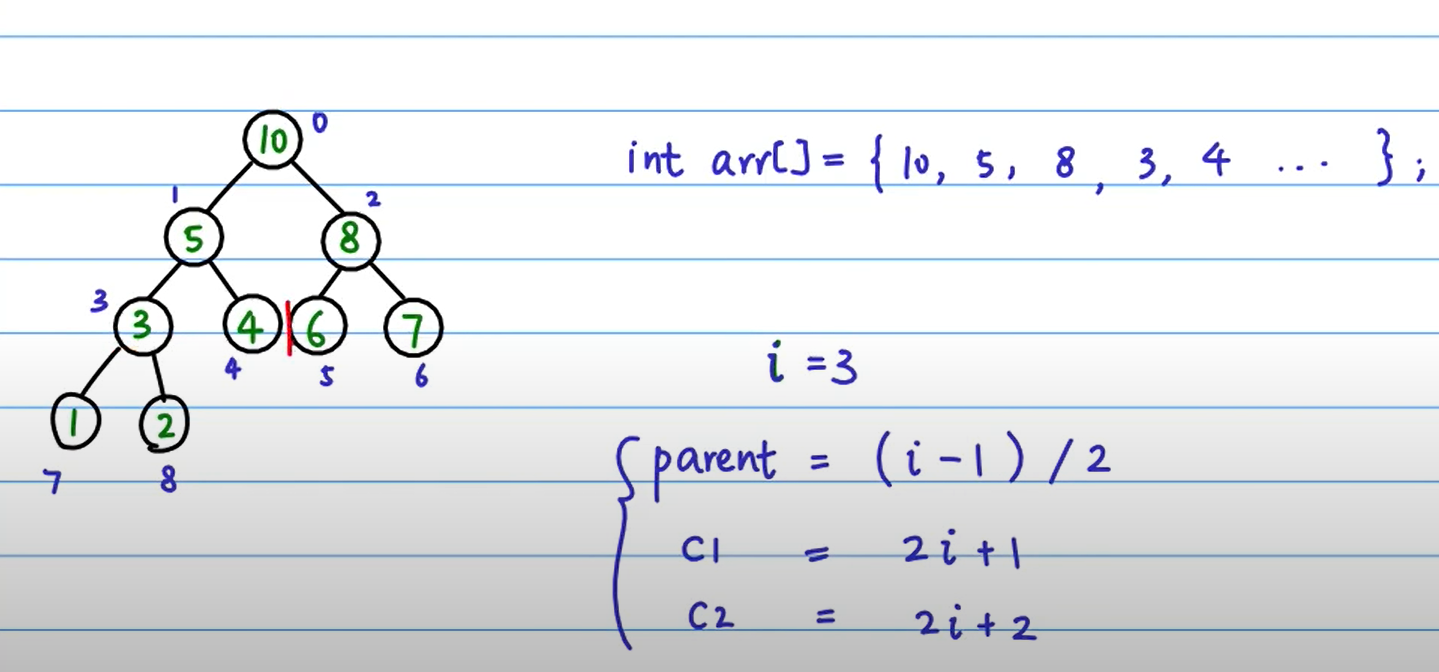 10 0
1 2
5 8
3
3 4 6 7
4 5 6
1 2
7 8
int arr[] = { 10, 5, 8, 3, 4 ... };
i = 3
parent = (i - 1) / 2
C1 = 2i + 1
C2 = 2i + 2